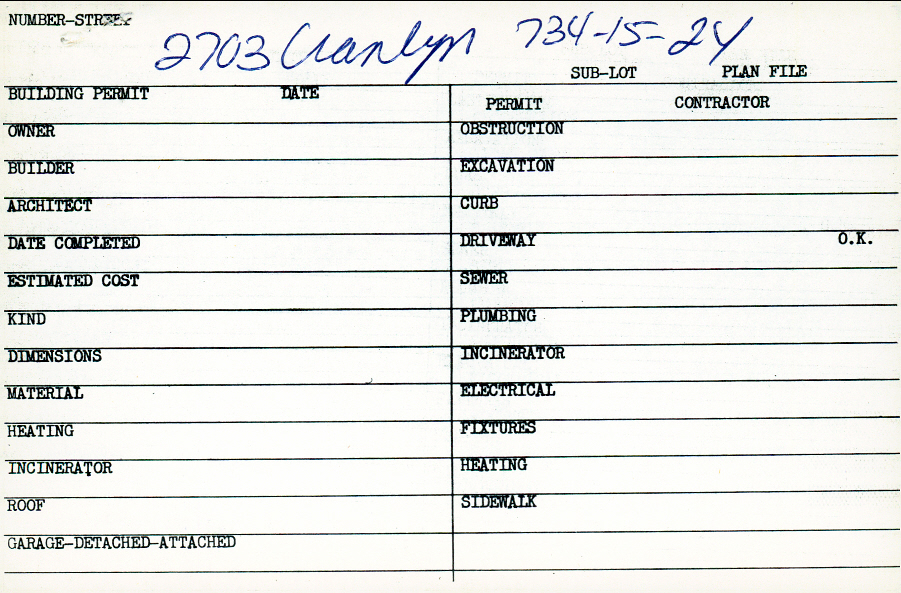 NUMBER-STREET
2703 Cranlyn 734-15-24
SUB-LOT PLAN FILE
BUILDING PERMIT DATE
PERMIT CONTRACTOR
OWNER
OBSTRUCTION
BUILDER
EXCAVATION
ARCHITECT
CURB
DATE COMPLETED
DRIVEWAY O.K.
ESTIMATED COST
SEWER
KIND
PLUMBING
DIMENSIONS
INCINERATOR
MATERIAL
ELECTRICAL
HEATING
FIXTURES
INCINERATOR
HEATING
ROOF
SIDEWALK
GARAGE-DETACHED-ATTACHED